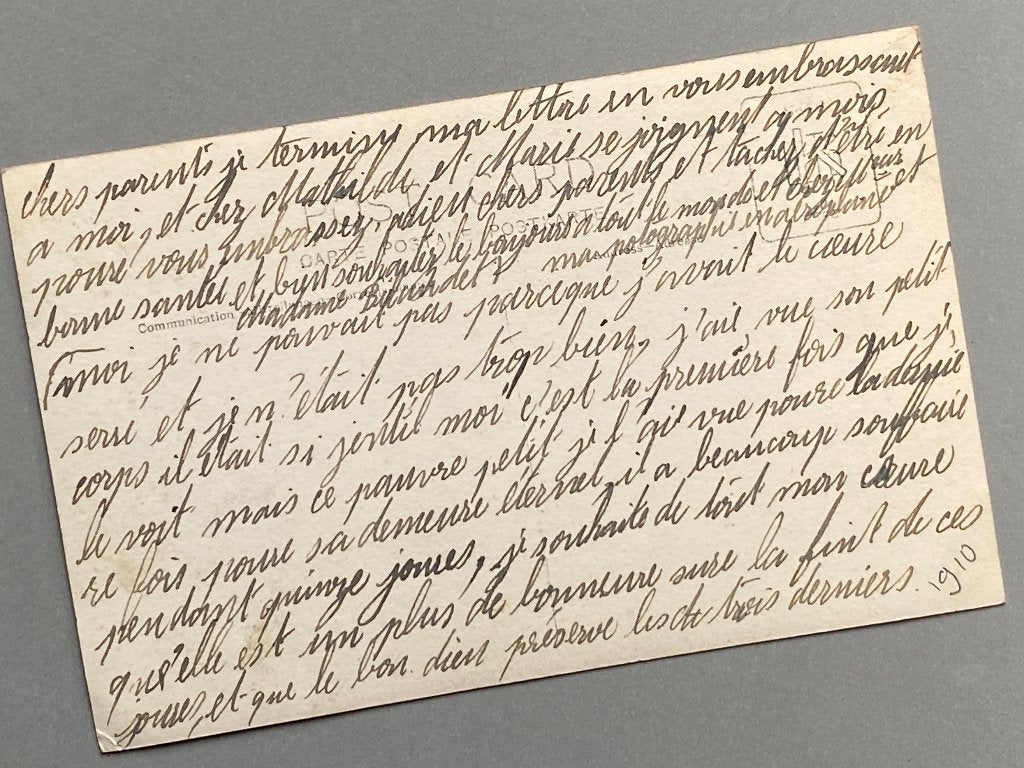 chers parents je termine ma lettre en vous embrassant
a moi, et chez Mathilde et Marie se joignent a mois
pouré vous embrassez, adieu chers parents et tacher d'être en
bonne santée et bien souhaiter le bonjours a tout le monde et
Madame ma photographie en aéroplane et
POST CARD
CARTE POSTALE POSTKARTE
Communication
moi je ne pouvait pas parceque j'avait le cœure
serré et je n'était pas trop bien, j'ait vue son petit
corps il était si jentil moi c'est la première fois que je
le voit mais ce pauvre petit je l'ait vue poure la derniè
re fois poure sa demeure éternel, il a beaucoup souffaire
pendant quinze joures, je souhaite de tout mon cœure
qu'elle est un plus de bonneure sure la fint de ces
joures, et que le bon dieu préserve les trois derniers.
1910